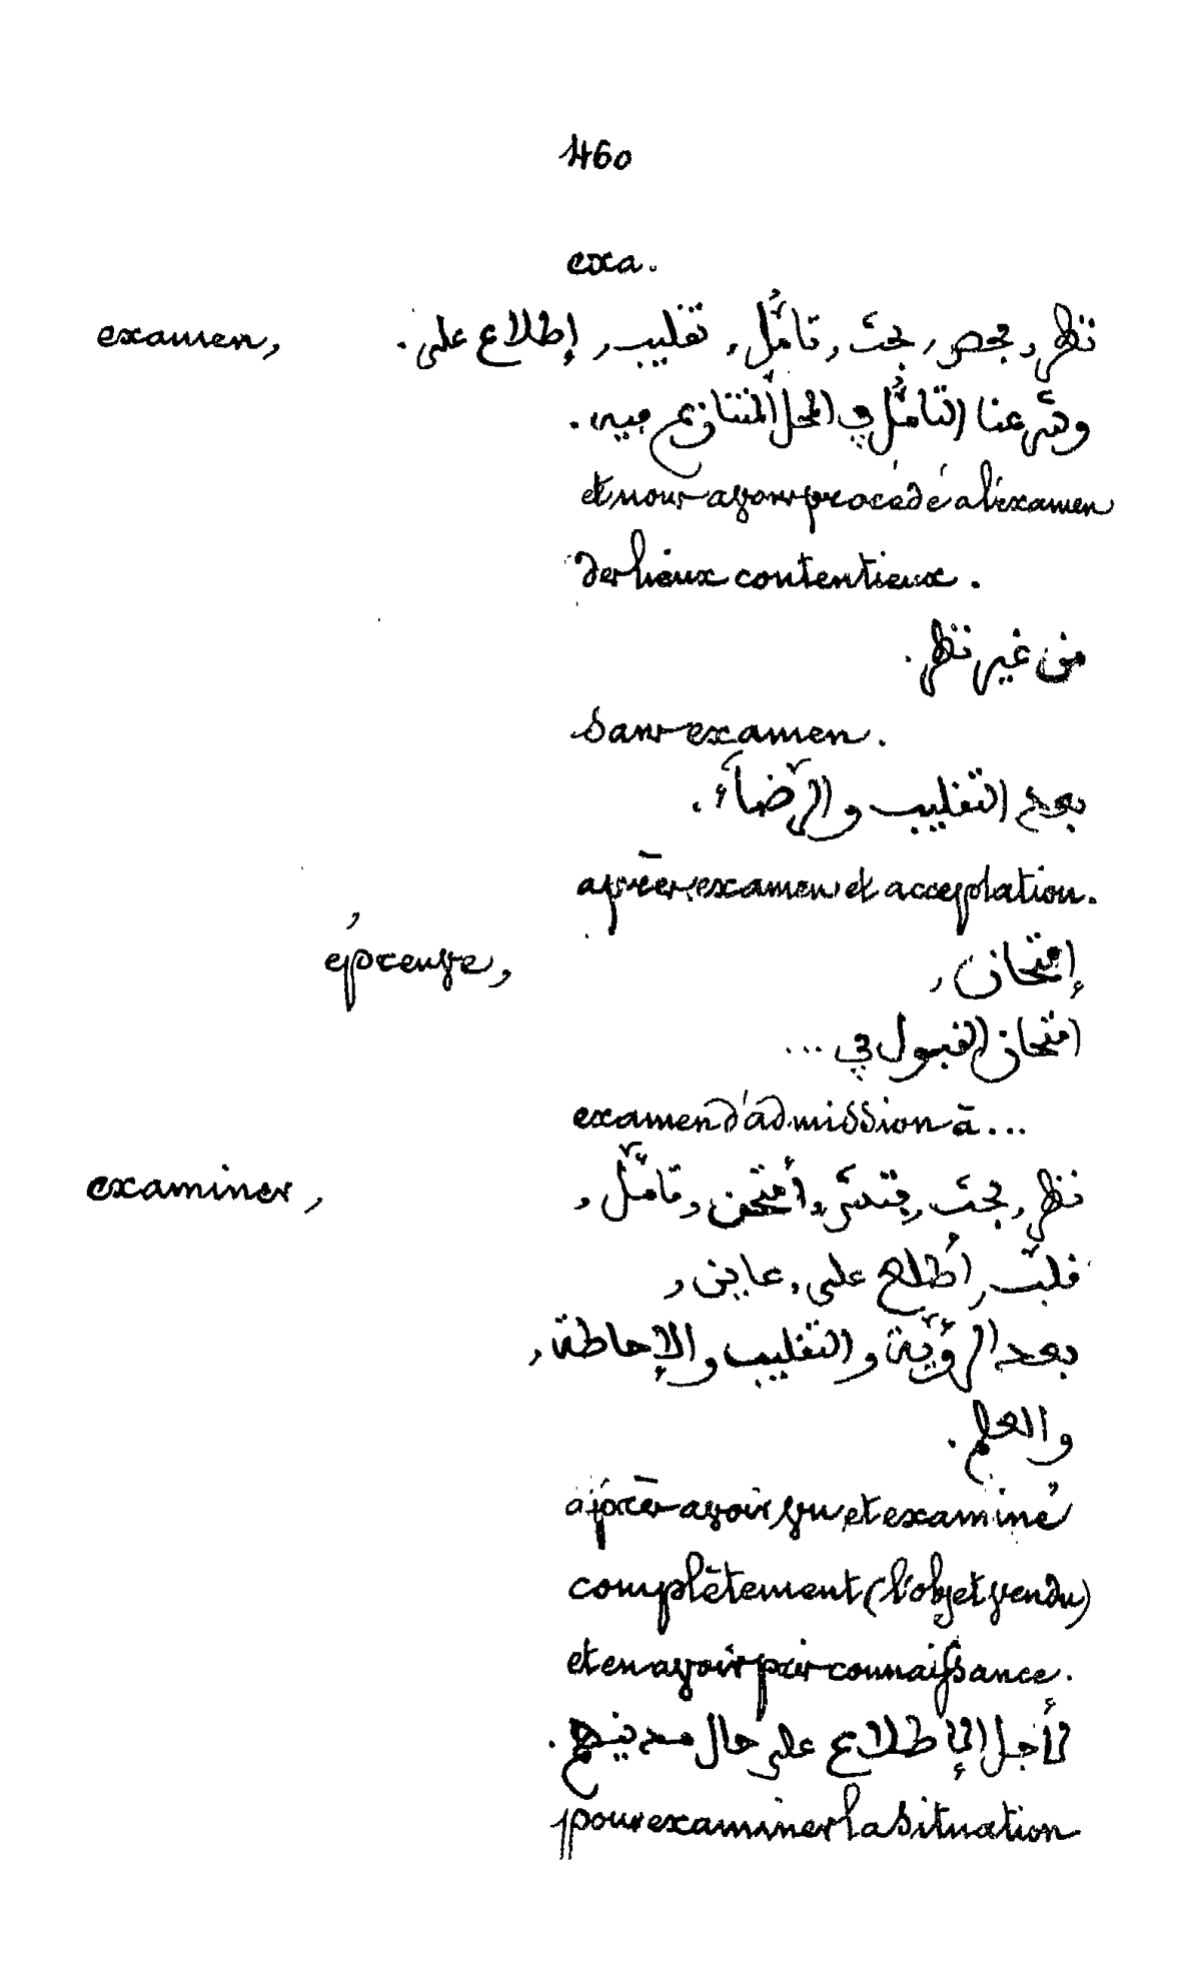 460
exa.
examen, نظر, بحص, بحث, تأمُّل, تفليب, إطلاع على.
وشرعنا التأمُّل في المحل المتنازع فيه.
et nous avons procédé à l'examen
des lieux contentieux.
من غير نظر.
sans examen.
بعد التفليب والرّضآء.
après examen et acceptation.
épreuve, إمتحان,
امتحان الفبول في ...
examen d'admission à ...
examiner, نظر, بحث, فتّش, أمتحن, تأمّل,
فلّب, أطّلع على, عاين,
بعد الرّؤيّة والتفليب والإحاطة,
والعلم.
après avoir vu et examiné
complètement (l'objet vendu)
et en avoir pris connaissance.
لأجل الإطلاع على حال مدينهم.
pour examiner la situation